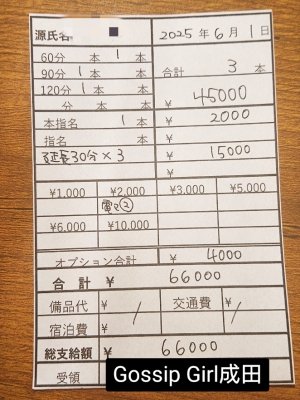 源氏名 2025年6月1日
60分 本 1本
90分 1本 本 合計 3本
120分 1本 本 ¥ 45000
分 本 本
本指名 1本 ¥ 2000
指名 本 ¥
延長30分×3 ¥ 15000
¥1,000 ¥2,000 ¥3,000 ¥5,000
電マ②
¥6,000 ¥10,000
オプション合計 ¥ 4000
合計 ¥ 66000
備品代 ¥ / 交通費 ¥ /
宿泊費 ¥
総支給額 ¥ 66000
受領
Gossip Girl成田